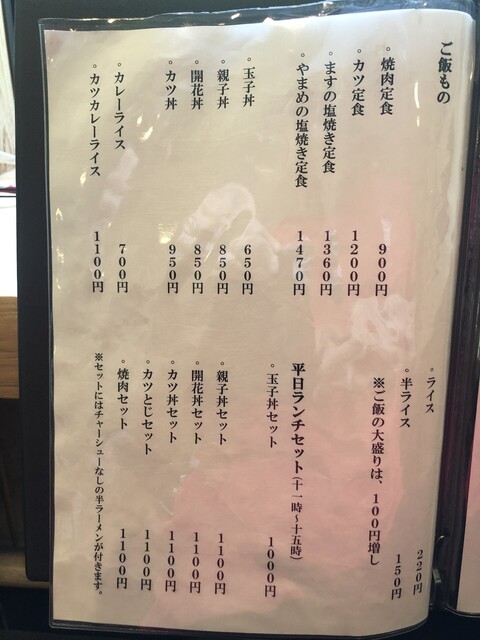 ご飯もの
。焼肉定食 900円
。カツ定食 1200円
。ますの塩焼き定食 1360円
。やまめの塩焼き定食 1470円
。玉子丼 650円
。親子丼 850円
。開花丼 850円
。カツ丼 950円
。カレーライス 700円
。カツカレーライス 1100円
。ライス 220円
。半ライス 150円
※ご飯の大盛りは、100円増し
平日ランチセット(十一時~十五時)
。玉子丼セット 1000円
。親子丼セット 1100円
。開花丼セット 1100円
。カツ丼セット 1100円
。カツとじセット 1100円
。焼肉セット 1100円
※セットにはチャーシューなしの半ラーメンが付きます。